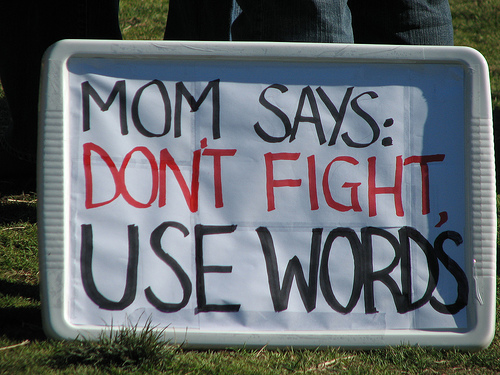 MOM SAYS:
DON'T FIGHT,
USE WORDS